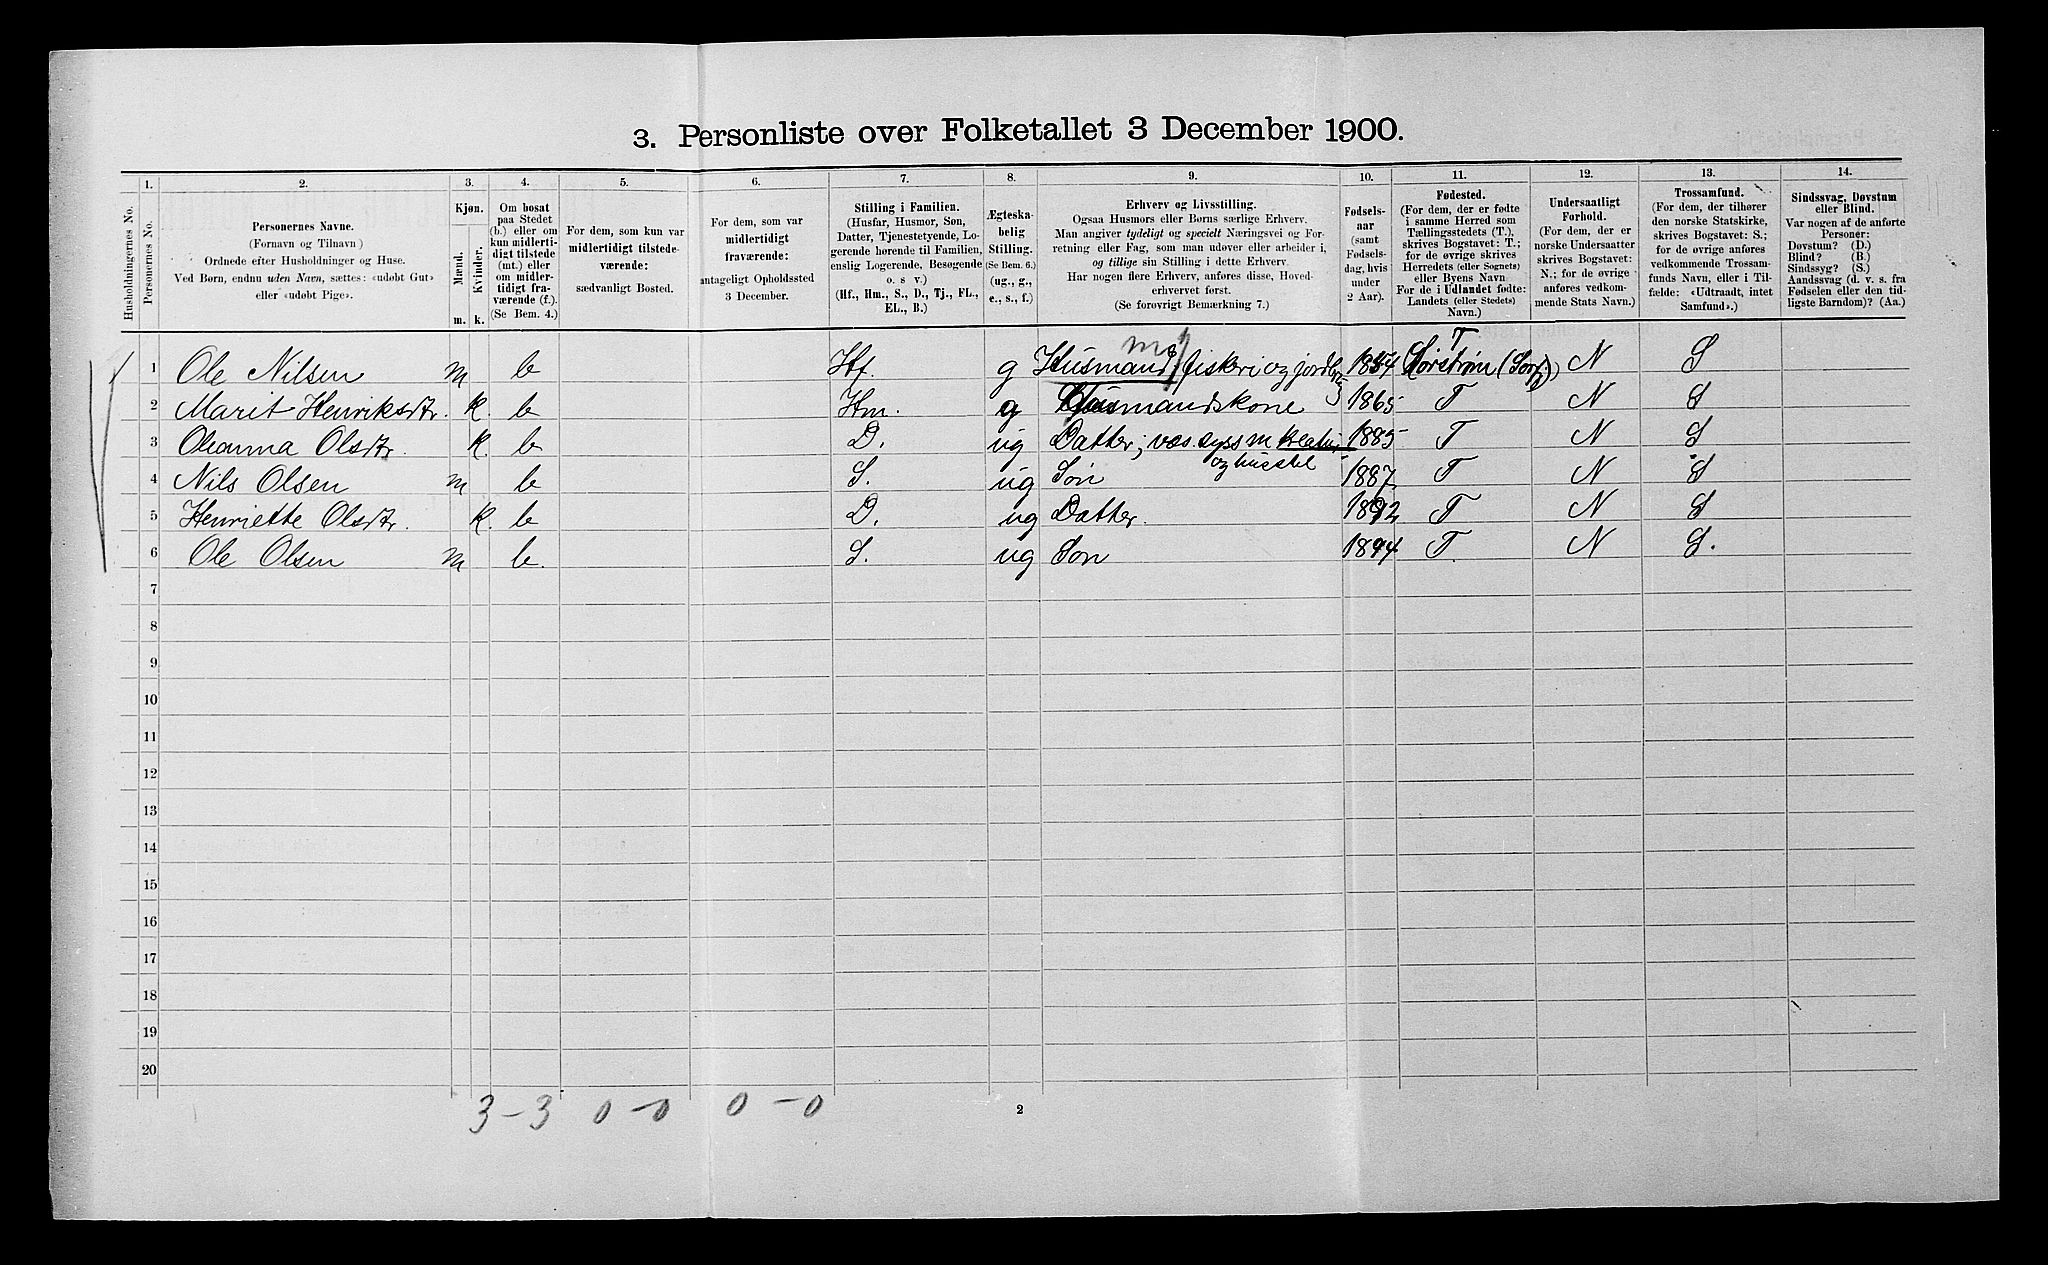 3. Personliste over Folketallet 3 December 1900.
1. 2. 3. 4. 5. 6. 7. 8. 9. 10. 11. 12. 13. 14.
Husholdningernes No.
Personernes No.
Personernes Navne.
(Fornavn og Tilnavn)
Ordnede efter Husholdninger og Huse.
Ved Børn, endnu uden Navn, sættes: «udøbt Gut»
eller «udøbt Pige».
Kjøn.
Mænd.
Kvinder.
m. k.
Om bosat
paa Stedet
(b.) eller om
kun midlerti-
digt tilstede
(mt.) eller
om midler-
tidigt fra-
værende (f.).
(Se Bem. 4.)
For dem, som kun var
midlertidigt tilstede-
værende:
sædvanligt Bosted.
For dem, som var
midlertidigt
fraværende:
antageligt Opholdssted
3 December.
Stilling i Familien.
(Husfar, Husmor, Søn,
Datter, Tjenestetyende, Lo-
gerende hørende til Familien,
enslig Logerende, Besøgende
o. s. v.)
(Hf., Hm., S., D., Tj., FL.,
EL., B.)
Ægteska-
belig
Stilling.
(Se Bem. 6.)
(ug., g.,
e., s., f.)
Erhverv og Livsstilling.
Ogsaa Husmors eller Børns særlige Erhverv.
Man angiver tydeligt og specielt Næringsvei og For-
retning eller Fag, som man udøver eller arbeider i,
og tillige sin Stilling i dette Erhverv.
Har nogen flere Erhverv, anføres disse, Hoved-
erhvervet først.
(Se forøvrigt Bemærkning 7.)
Fødsels-
aar
(samt
Fødsels-
dag, hvis
under
2 Aar).
Fødested.
(For dem, der er fødte
i samme Herred som
Tællingsstedets (T.),
skrives Bogstavet: T.;
for de øvrige skrives
Herredets (eller Sognets)
eller Byens Navn.
For de i Udlandet fødte:
Landets (eller Stedets)
Navn.)
Undersaatligt
Forhold.
(For dem, der er
norske Undersaatter
skrives Bogstavet:
N.; for de øvrige
anføres vedkom-
mende Stats Navn.)
Trossamfund.
(For dem, der tilhører
den norske Statskirke,
skrives Bogstavet: S.;
for de øvrige anføres
vedkommende Trossam-
funds Navn, eller i Til-
fælde: «Udtraadt, intet
Samfund».)
Sindssvag, Døvstum
eller Blind.
Var nogen af de anførte
Personer:
Døvstum? (D.)
Blind? (B.)
Sindssyg? (S.)
Aandssvag (d. v. s. fra
Fødselen eller den tid-
ligste Barndom)? (Aa.)
1 Ole Nilsen m b Hf. g Husmand, fiskeri og jordbr. 1854 T N S
2 Marit Henriksdtr. k. b Hm. g Husmandskone 1865 T N S
3 Oleanna Olsdtr. k. b D. ug Datter; væs. syss m kreatur 1885 T N S
og husstel
4 Nils Olsen m b S. ug Søn 1887 T N S
5 Henriette Olsdtr. k. b D. ug Datter. 1892 T N S
6 Ole Olsen m b. S. ug Søn 1894 T N S.
7
8
9
10
11
12
13
14
15
16
17
18
19
20
3 – 3 0 – 0 0 – 0
2